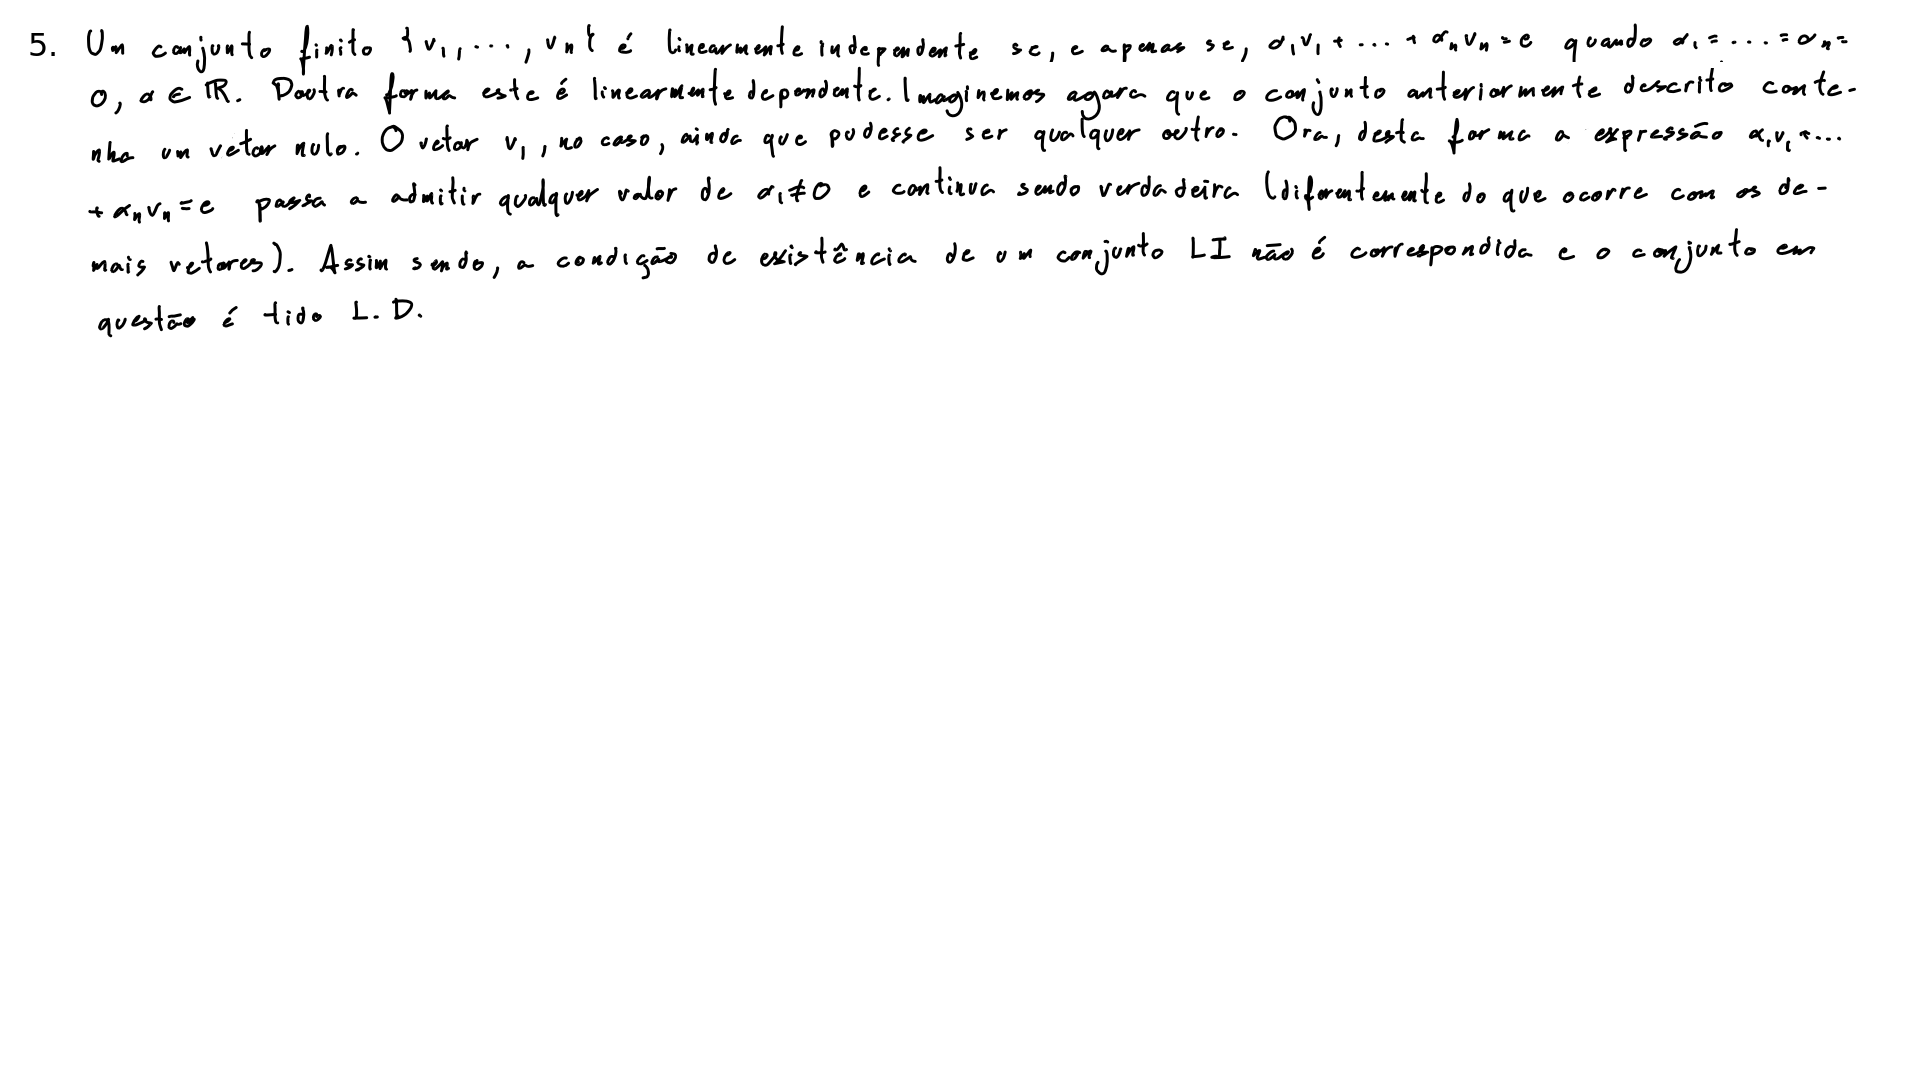 5. Um conjunto finito {v₁, ..., vₙ} é linearmente independente se, e apenas se, α₁v₁ + ... + αₙvₙ = e quando α₁ = ... = αₙ =
0, α ∈ ℝ. Doutra forma este é linearmente dependente. Imaginemos agora que o conjunto anteriormente descrito conte-
nha um vetor nulo. O vetor v₁, no caso, ainda que pudesse ser qualquer outro. Ora, desta forma a expressão α₁v₁ + ...
+ αₙvₙ = e passa a admitir qualquer valor de α₁ ≠ 0 e continua sendo verdadeira (diferentemente do que ocorre com os de-
mais vetores). Assim sendo, a condição de existência de um conjunto LI não é correspondida e o conjunto em
questão é tido L.D.